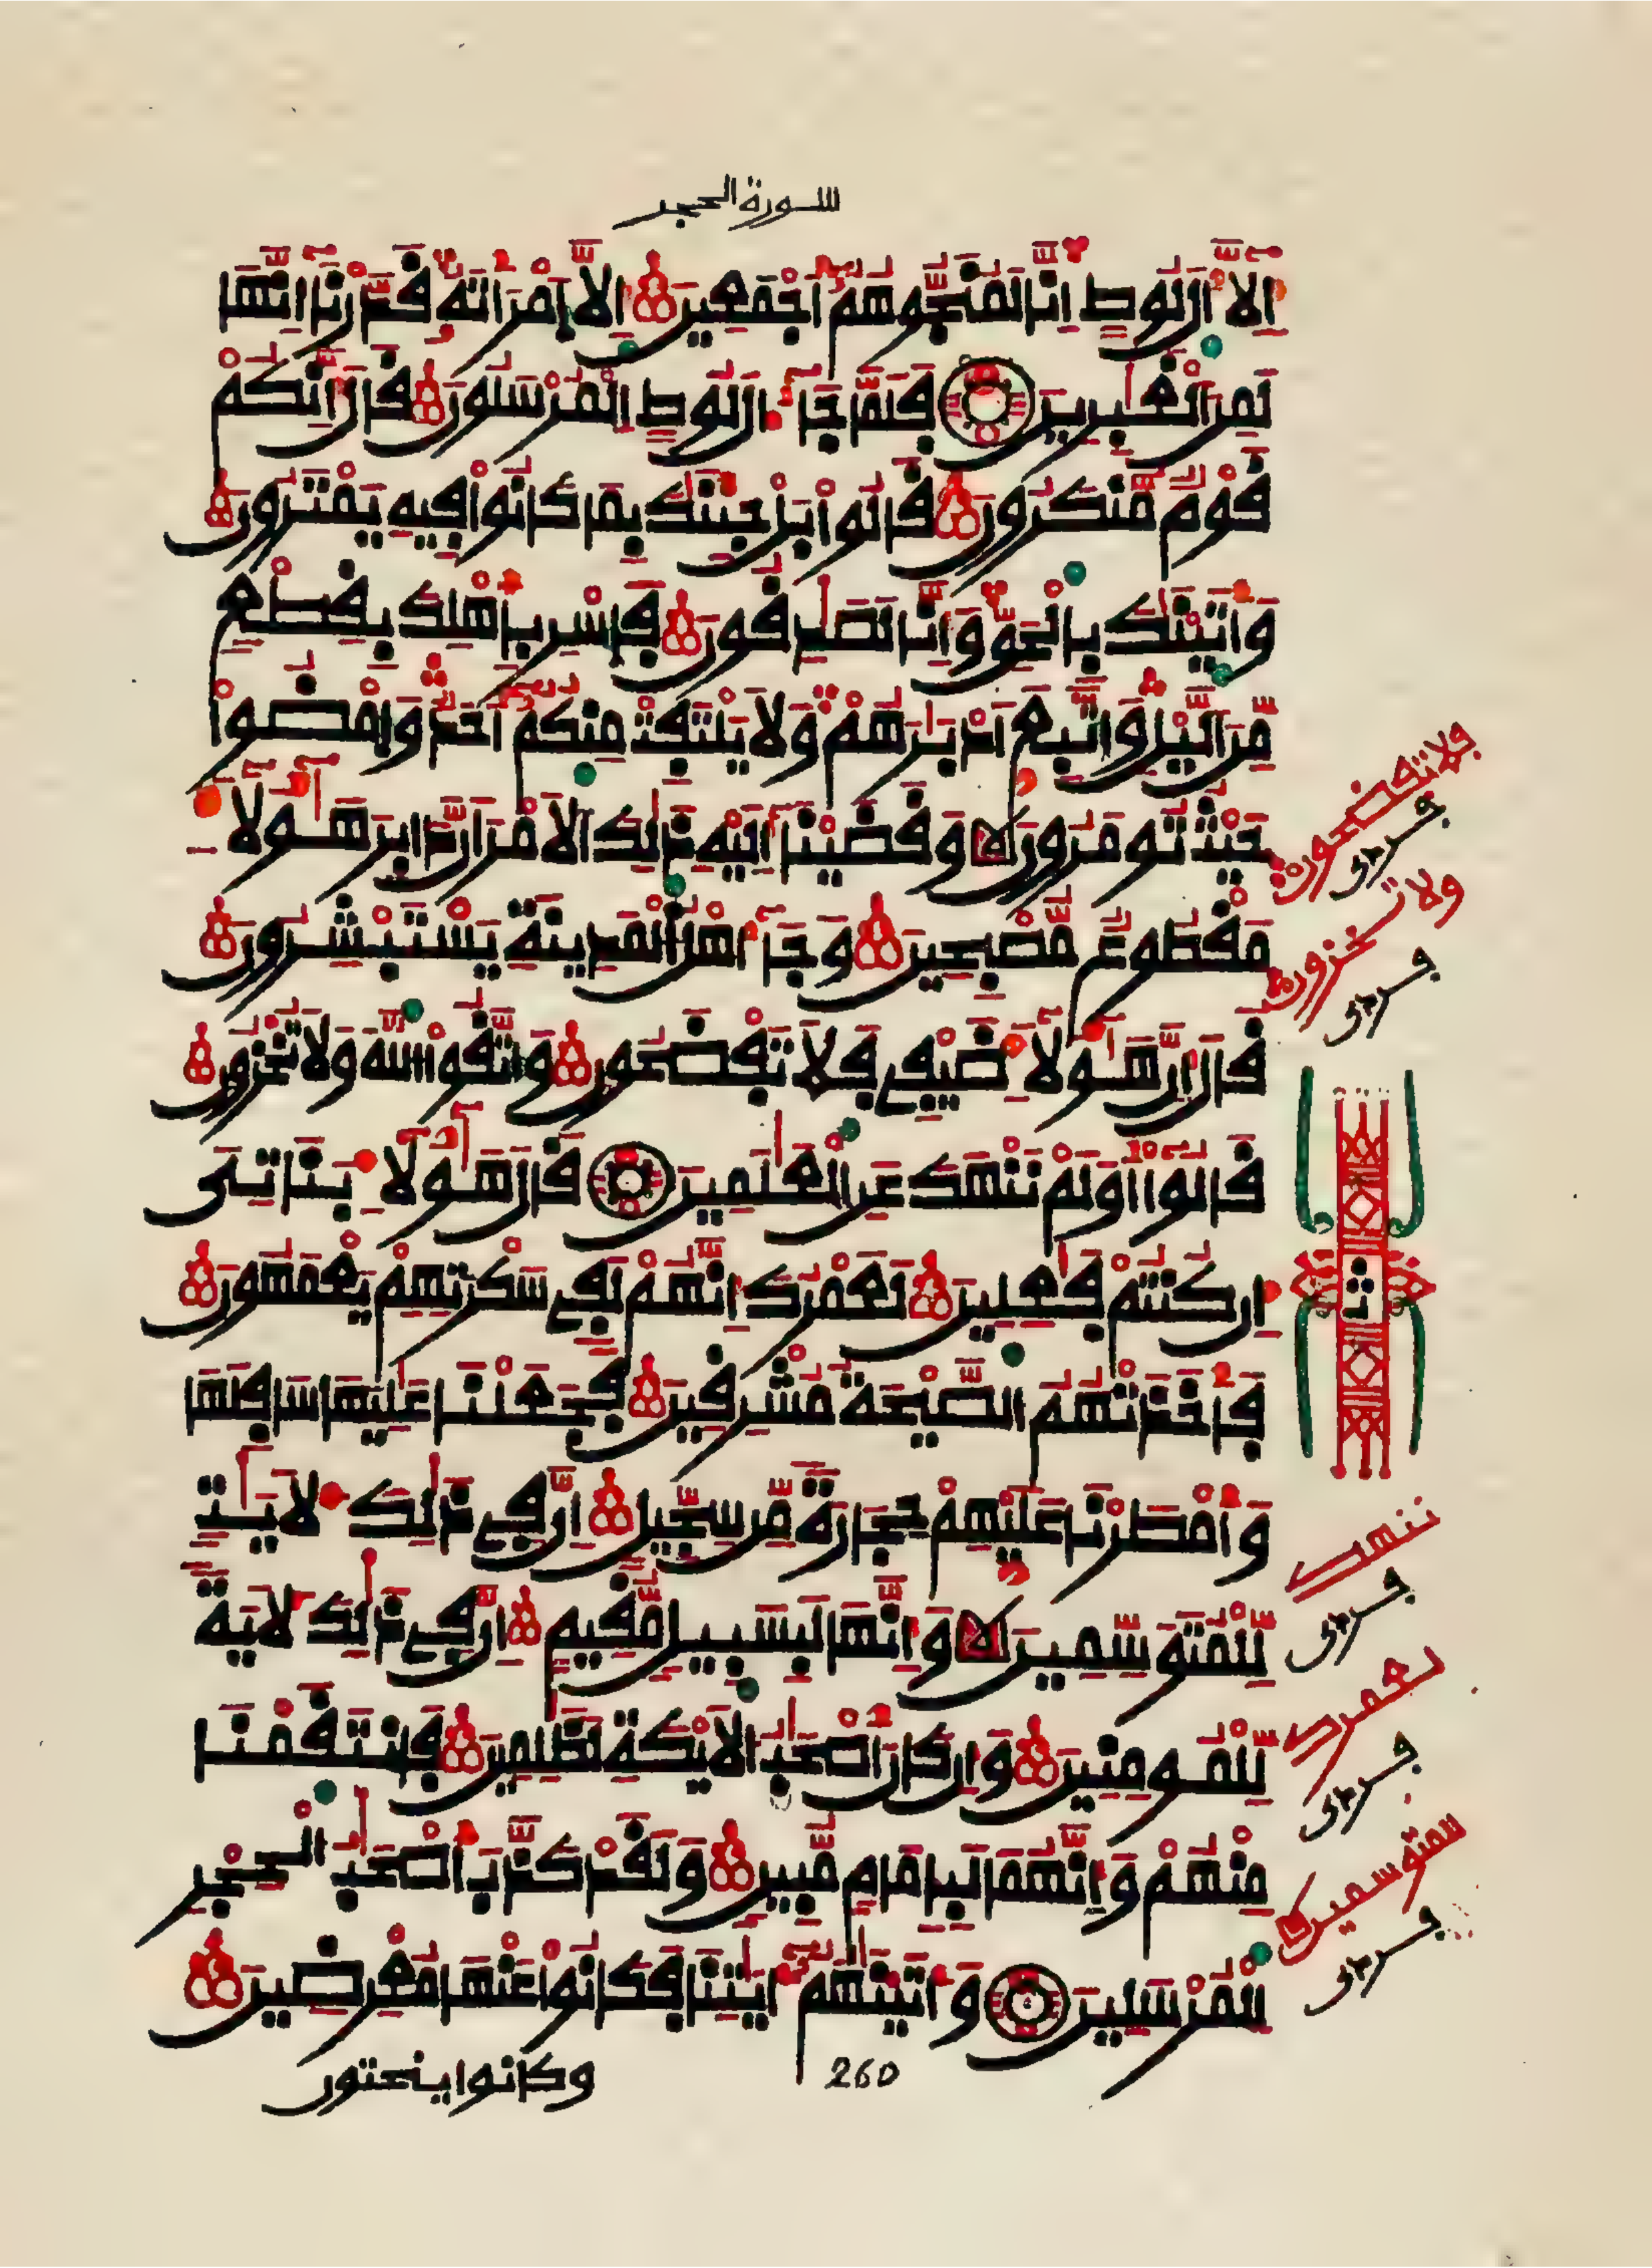 سورة الحجر
إِلَّآ ءَالَ لُوطٍ إِنَّا لَمُنَجُّوهُمُۥٓ أَجْمَعِينَ إِلَّا اَمْرَأَتَهُۥ قَدَّرْنَآ إِنَّهَا
لَمِنَ اَلْغَٰبِرِينَ فَلَمَّا جَآءَ الَ لُوطٍ اِلْمُرْسَلُونَ قَالَ إِنَّكُمْ
قَوْمٌ مُّنكَرُونَ قَالُوا۟ بَلْ جِئْنَٰكَ بِمَا كَانُوا۟ فِيهِ يَمْتَرُونَ
وَأَتَيْنَٰكَ بِالْحَقِّ وَإِنَّا لَصَٰدِقُونَ فَاسْرِ بِأَهْلِكَ بِقِطْعٍ
مِّنَ اَلَّيْلِ وَاتَّبِعَ اَدْبَٰرَهُمْ وَلَا يَلْتَفِتْ مِنكُمُۥٓ أَحَدٌ وَامْضُوا۟
حَيْثُ تُومَرُونَ وَقَضَيْنَآ إِلَيْهِ ذَٰلِكَ اَلَامْرَ أَنَّ دَابِرَ هَٰٓؤُلَآءِ
مَقْطُوعٌ مُّصْبِحِينَ وَجَآءَ اهْلُ اُلْمَدِينَةِ يَسْتَبْشِرُونَ
قَالَ إِنَّ هَٰٓؤُلَآءِ ضَيْفِى فَلَا تَفْضَحُونِ وَاتَّقُوا۟ اُللَّهَ وَلَا تُخْزُونِ
قَالُوٓا۟ أَوَلَمْ نَنْهَكَ عَنِ اِلْعَٰلَمِينَ قَالَ هَٰٓؤُلَآءِ بَنَاتِىَ
إِن كُنتُمْ فَٰعِلِينَ لَعَمْرُكَ إِنَّهُمْ لَفِى سَكْرَتِهِمْ يَعْمَهُونَ
فَأَخَذَتْهُمُ اُلصَّيْحَةُ مُشْرِقِينَ فَجَعَلْنَا عَٰلِيَهَا سَافِلَهَا
وَأَمْطَرْنَا عَلَيْهِمْ حِجَارَةً مِّن سِجِّيلٍ إِنَّ فِى ذَٰلِكَ لَأٓيَٰتٍ
لِّلْمُتَوَسِّمِينَ وَإِنَّهَا لَبِسَبِيلٍ مُّقِيمٍ إِنَّ فِى ذَٰلِكَ لَأٓيَةً
لِّلْمُومِنِينَ وَإِن كَانَ أَصْحَٰبُ اُلَايْكَةِ لَظَٰلِمِينَ فَانتَقَمْنَا
مِنْهُمْ وَإِنَّهُمَا لَبِإِمَامٍ مُّبِينٍ وَلَقَدْ كَذَّبَ أَصْحَٰبُ الْحِجْرِ
اِلْمُرْسَلِينَ وَءَاتَيْنَٰهُمُۥٓ ءَايَٰتِنَا فَكَانُوا۟ عَنْهَا مُعْرِضِينَ
260
وكانوا ينحتون
فلا تفضحون
ولا تخزون
ثمن
ننهك
لعمرك
للمتوسمين